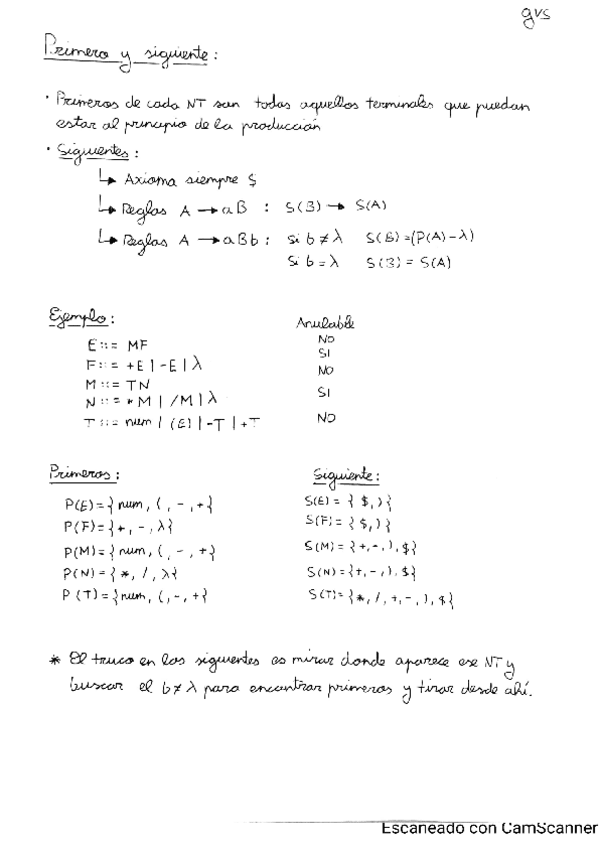 gvs
Primero y siguiente:
· Primeros de cada NT son todos aquellos terminales que puedan
estar al principio de la producción
· Siguientes:
↳ Axioma siempre $
↳ Reglas A → aB : S(B) → S(A)
↳ Reglas A → aBb : si b ≠ λ S(B) = (P(A) - λ)
si b = λ S(B) = S(A)
Ejemplo: Anulable
E ::= MF NO
F ::= +E | -E | λ SI
M ::= TN NO
N ::= *M | /M | λ SI
T ::= num | (E) | -T | +T NO
Primeros: Siguiente:
P(E) = {num, (, -, +} S(E) = {$, )}
P(F) = {+, -, λ} S(F) = {$, )}
P(M) = {num, (, -, +} S(M) = {+, -, ), $}
P(N) = {*, /, λ} S(N) = {+, -, ), $}
P(T) = {num, (, -, +} S(T) = {*, /, +, -, ), $}
* El truco en los siguientes es mirar donde aparece ese NT y
buscar el b ≠ λ para encontrar primeros y tirar desde ahí.
Escaneado con CamScanner